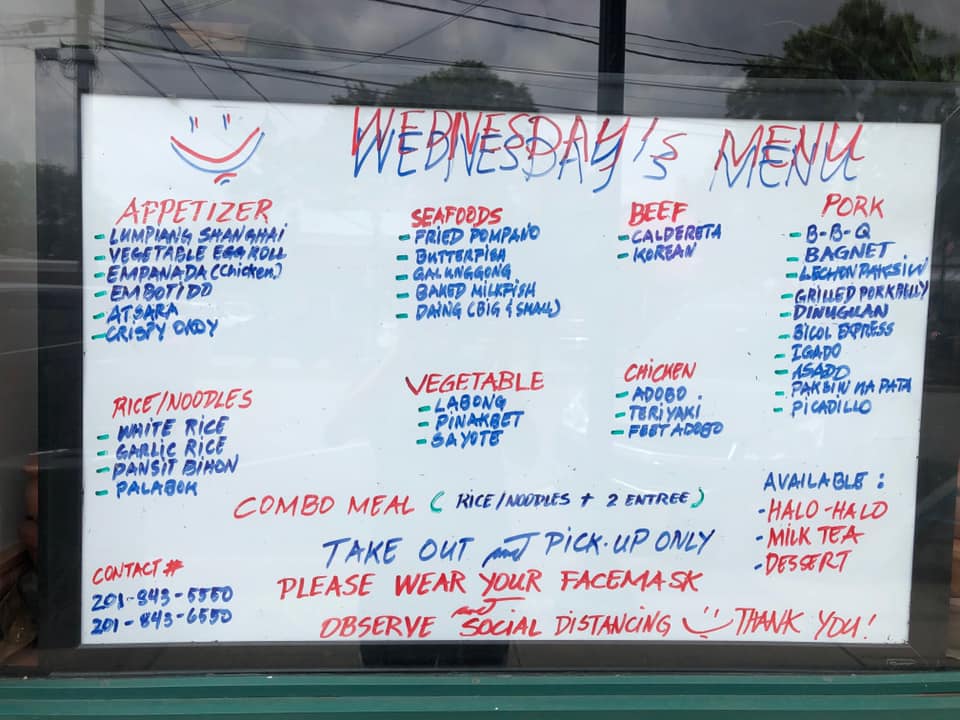 WEDNESDAY'S MENU
APPETIZER
- LUMPIANG SHANGHAI
- VEGETABLE EGGROLL
- EMPANADA (Chicken)
- EMBOTIDO
- ATSARA
- CRISPY OKOY
SEAFOODS
- FRIED POMPANO
- BUTTERFISH
- GALUNGGONG
- BAKED MILKFISH
- DAING (BIG & SMALL)
BEEF
- CALDERETA
- KOREAN
PORK
- B-B-Q
- BAGNET
- LECHON PAKSIW
- GRILLED PORKBELLY
- DINUGUAN
- BICOL EXPRESS
- IGADO
- ASADO
- PAKSIW NA PATA
- PICADILLO
RICE/NOODLES
- WHITE RICE
- GARLIC RICE
- PANSIT BIHON
- PALABOK
VEGETABLE
- LABONG
- PINAKBET
- SAYOTE
CHICKEN
- ADOBO.
- TERIYAKI
- FEET ADOBO
COMBO MEAL (RICE/NOODLES + 2 ENTREE)
AVAILABLE:
- HALO-HALO
- MILK TEA
- DESSERT
TAKE OUT and PICK-UP ONLY
PLEASE WEAR YOUR FACEMASK
and
OBSERVE SOCIAL DISTANCING THANK YOU!
CONTACT #
201-843-5550
201-843-6550